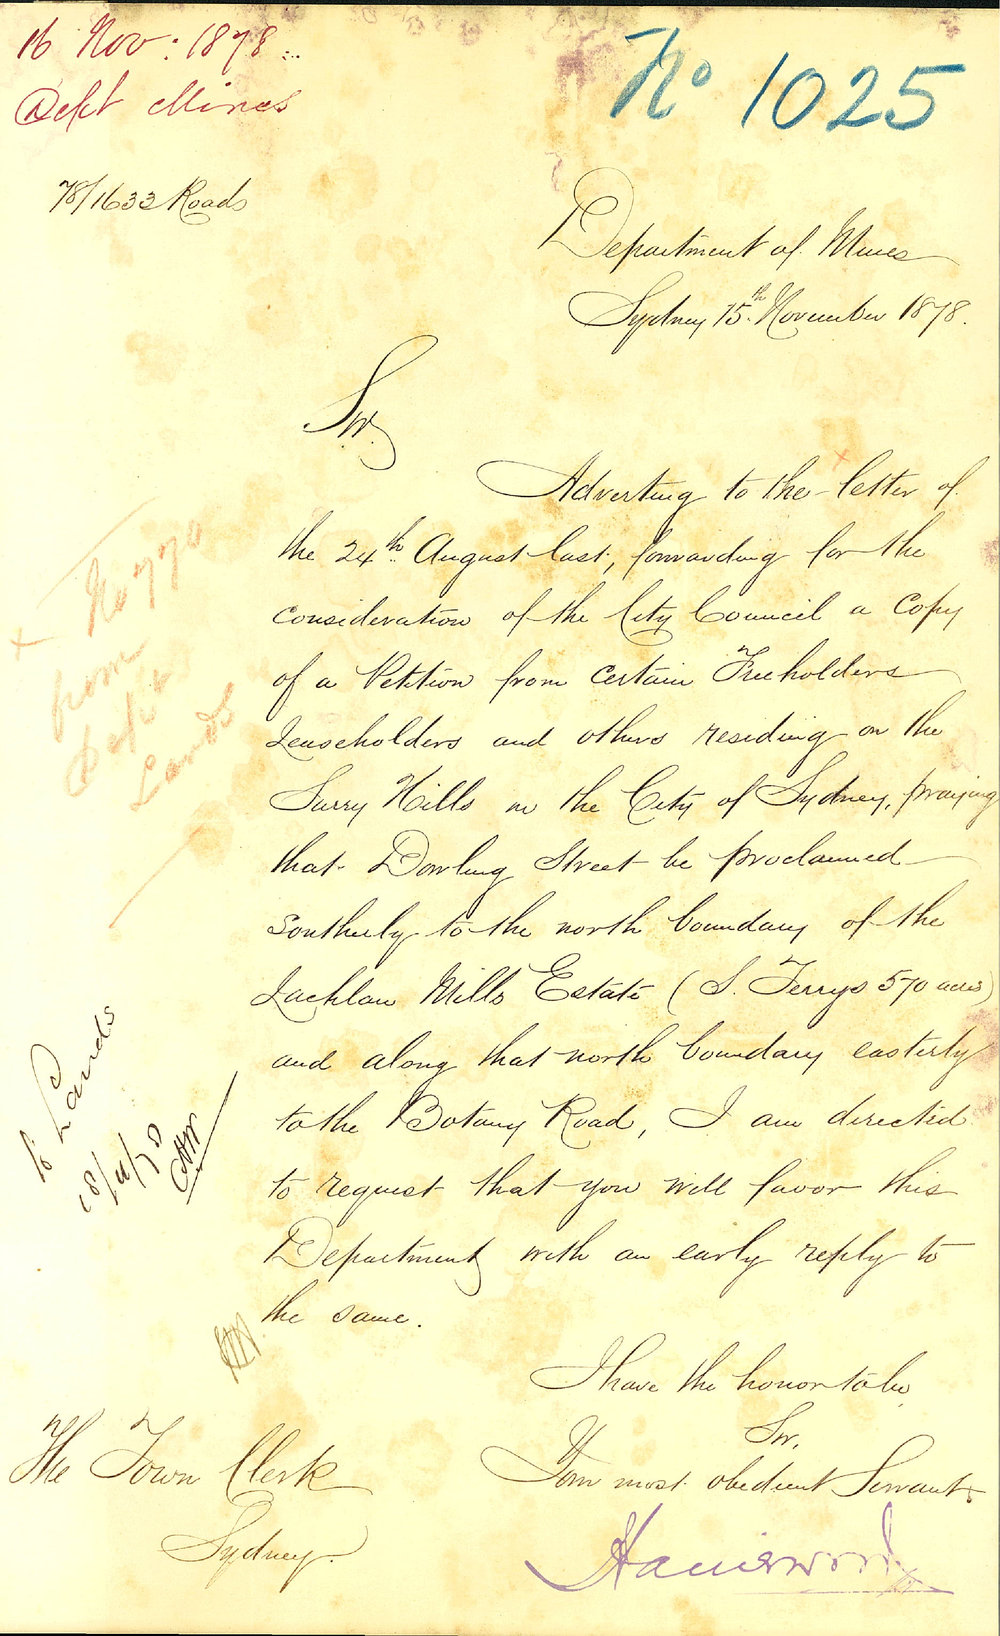 16 Nov: 1878
Dept Mines
No 1025
78/1633 Roads
Department of Mines
Sydney 15th November 1878.
Sir,
Adverting to the letter of
the 24th August last, forwarding for the
consideration of the City Council a copy
of a Petition from certain Freeholders
Leaseholders and others residing on the
Surry Hills in the City of Sydney, praying
that Dowling Street be proclaimed
southerly to the north boundary of the
Lachlan Mills Estate (S. Terrys 570 acres)
and along that north boundary easterly
to the Botany Road, I am directed
to request that you will favor this
Department with an early reply to
the same.
I have the honor to be,
Sir,
Your most obedient Servant,
The Town Clerk
Sydney.
x No 770
from
Dept
Lands
To Lands
18/11/78